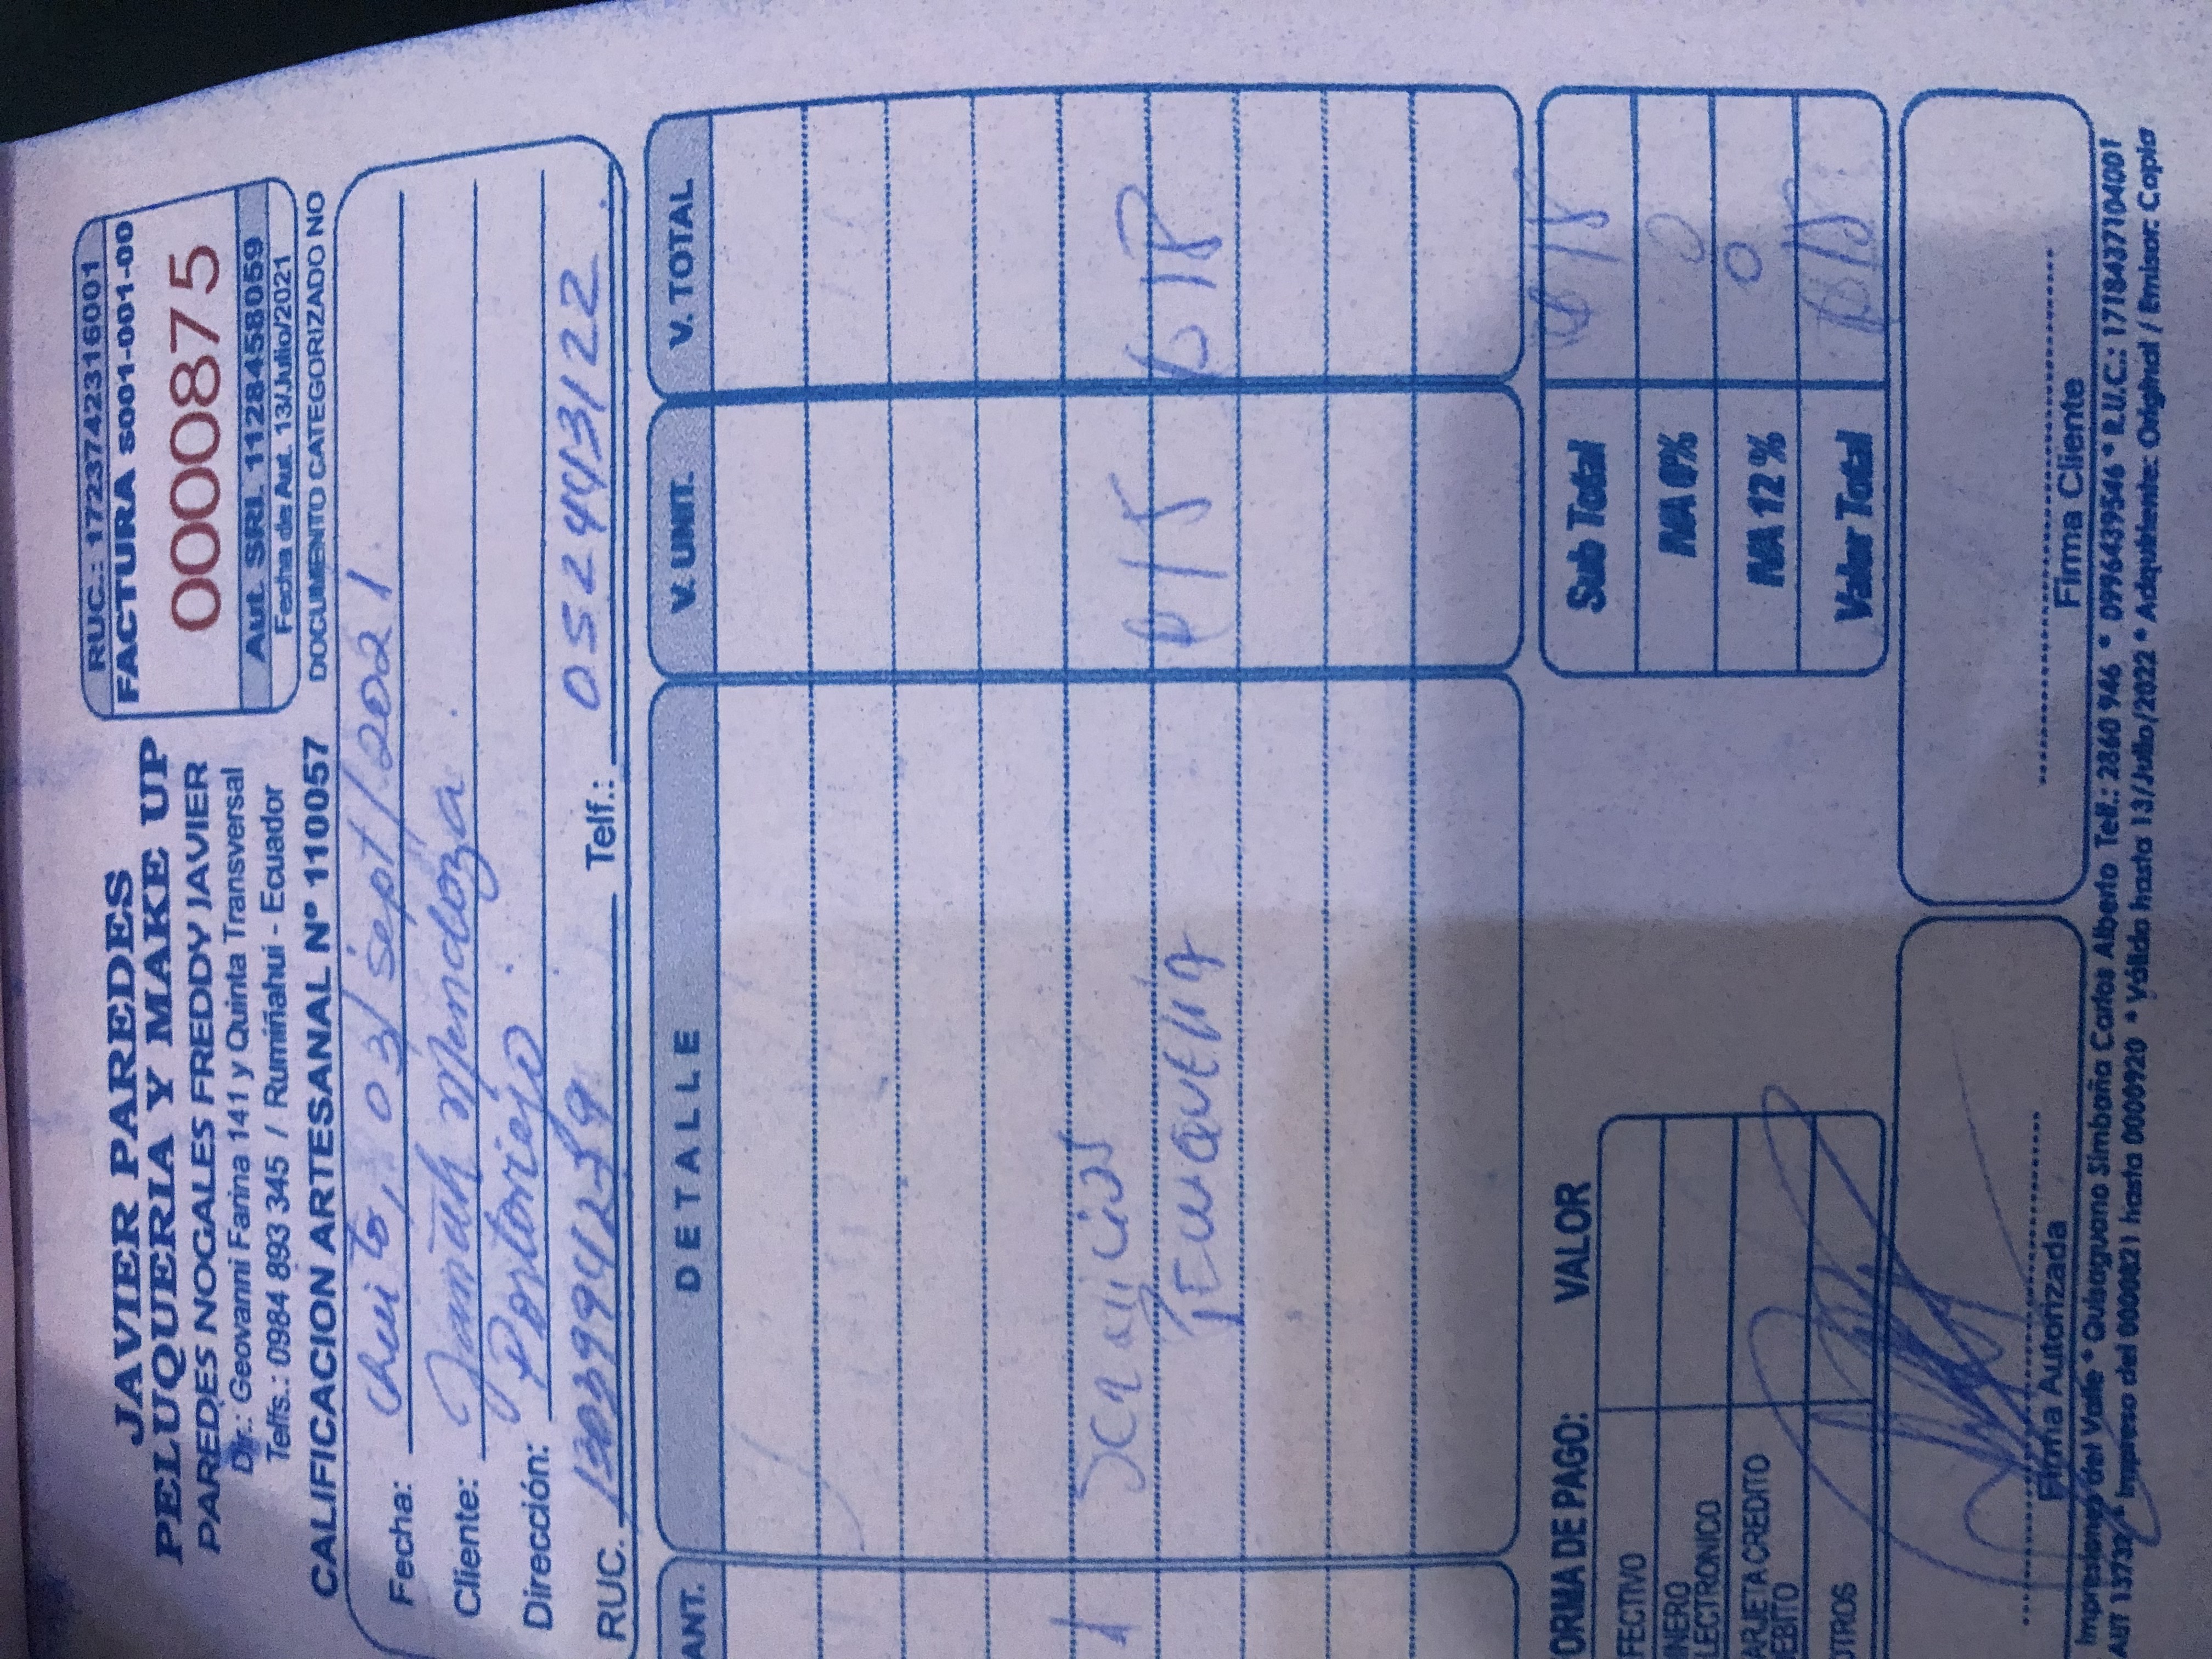 JAVIER PAREDES
PELUQUERIA Y MAKE UP
PAREDES NOGALES FREDDY JAVIER
Dir.: Geovanni Farina 141 y Quinta Transversal
Telfs.: 0984 893 345 / Rumiñahui - Ecuador
CALIFICACION ARTESANAL Nº 110057
RUC.: 1723742316001
FACTURA S001-001-00
0000875
Aut. SRI. 1128458059
Fecha de Aut. 13/Julio/2021
DOCUMENTO CATEGORIZADO NO
Fecha: Quito, 03/sept/2021
Cliente: Mendoza
Dirección: Portoviejo
RUC. Telf.: 052443122
ANT. DETALLE V. UNIT. V. TOTAL
1 Servicios
Peluquería $15 $18
FORMA DE PAGO: VALOR
EFECTIVO
DINERO ELECTRONICO
TARJETA CREDITO
DEBITO
OTROS
Sub Total $18
IVA 0% 0
IVA 12 % 0
Valor Total $18
Firma Autorizada
Firma Cliente
Impresiones del Valle * Quilaguano Simbaña Carlos Alberto Telf.: 2860 946 * 0996439546 * R.U.C.: 1718437104001
AUT 13732 * Impreso del 0000821 hasta 0000920 * Válido hasta 13/Julio/2022 * Adquiriente: Original / Emisor: Copia